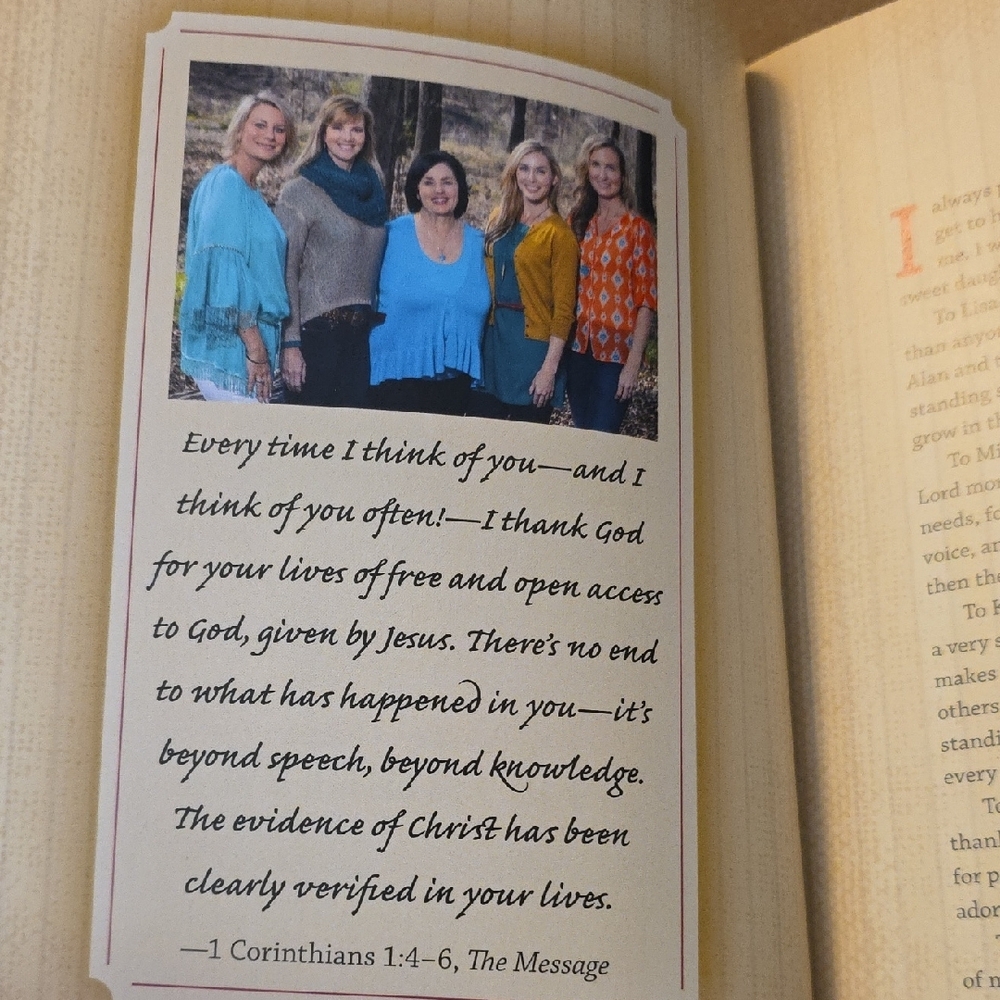 Every time I think of you—and I
think of you often!—I thank God
for your lives of free and open access
to God, given by Jesus. There's no end
to what has happened in you—it's
beyond speech, beyond knowledge.
The evidence of Christ has been
clearly verified in your lives.
—1 Corinthians 1:4–6, The Message
I always
get to
me. I
sweet
To Lisa
than
Alan and
standing
grow in
To
Lord
needs,
voice,
then
To
a very
makes
others
every
To
for
of